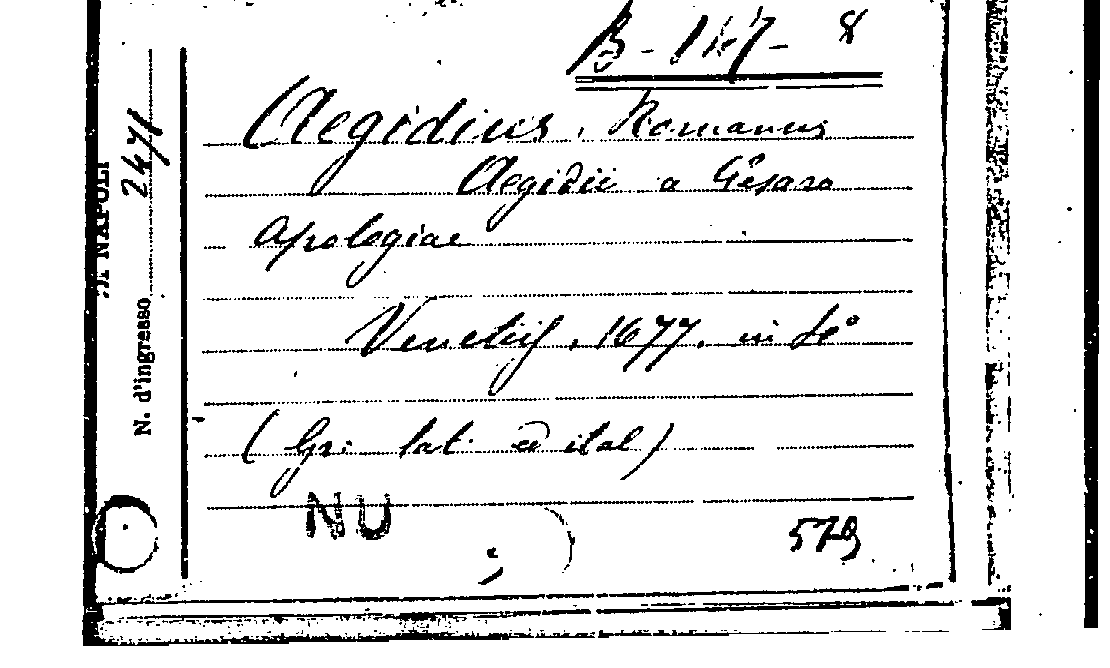 B-147-8
Aegidius, Romanus
Aegidii a Gésaro
Apologiae
Venetiis, 1677. in fo°
(Gr: lat. ed ital)
NU
579
DI NAPOLI
N. d'ingresso 2471